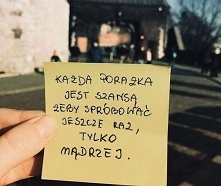 KAŻDA PORAŻKA
JEST SZANSĄ
ŻEBY SPRÓBOWAĆ
JESZCZE RAZ,
TYLKO
MĄDRZEJ.